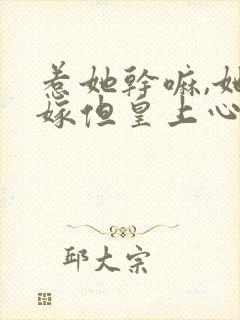 惹她幹嘛,她
嫁但皇上心
邱大宗